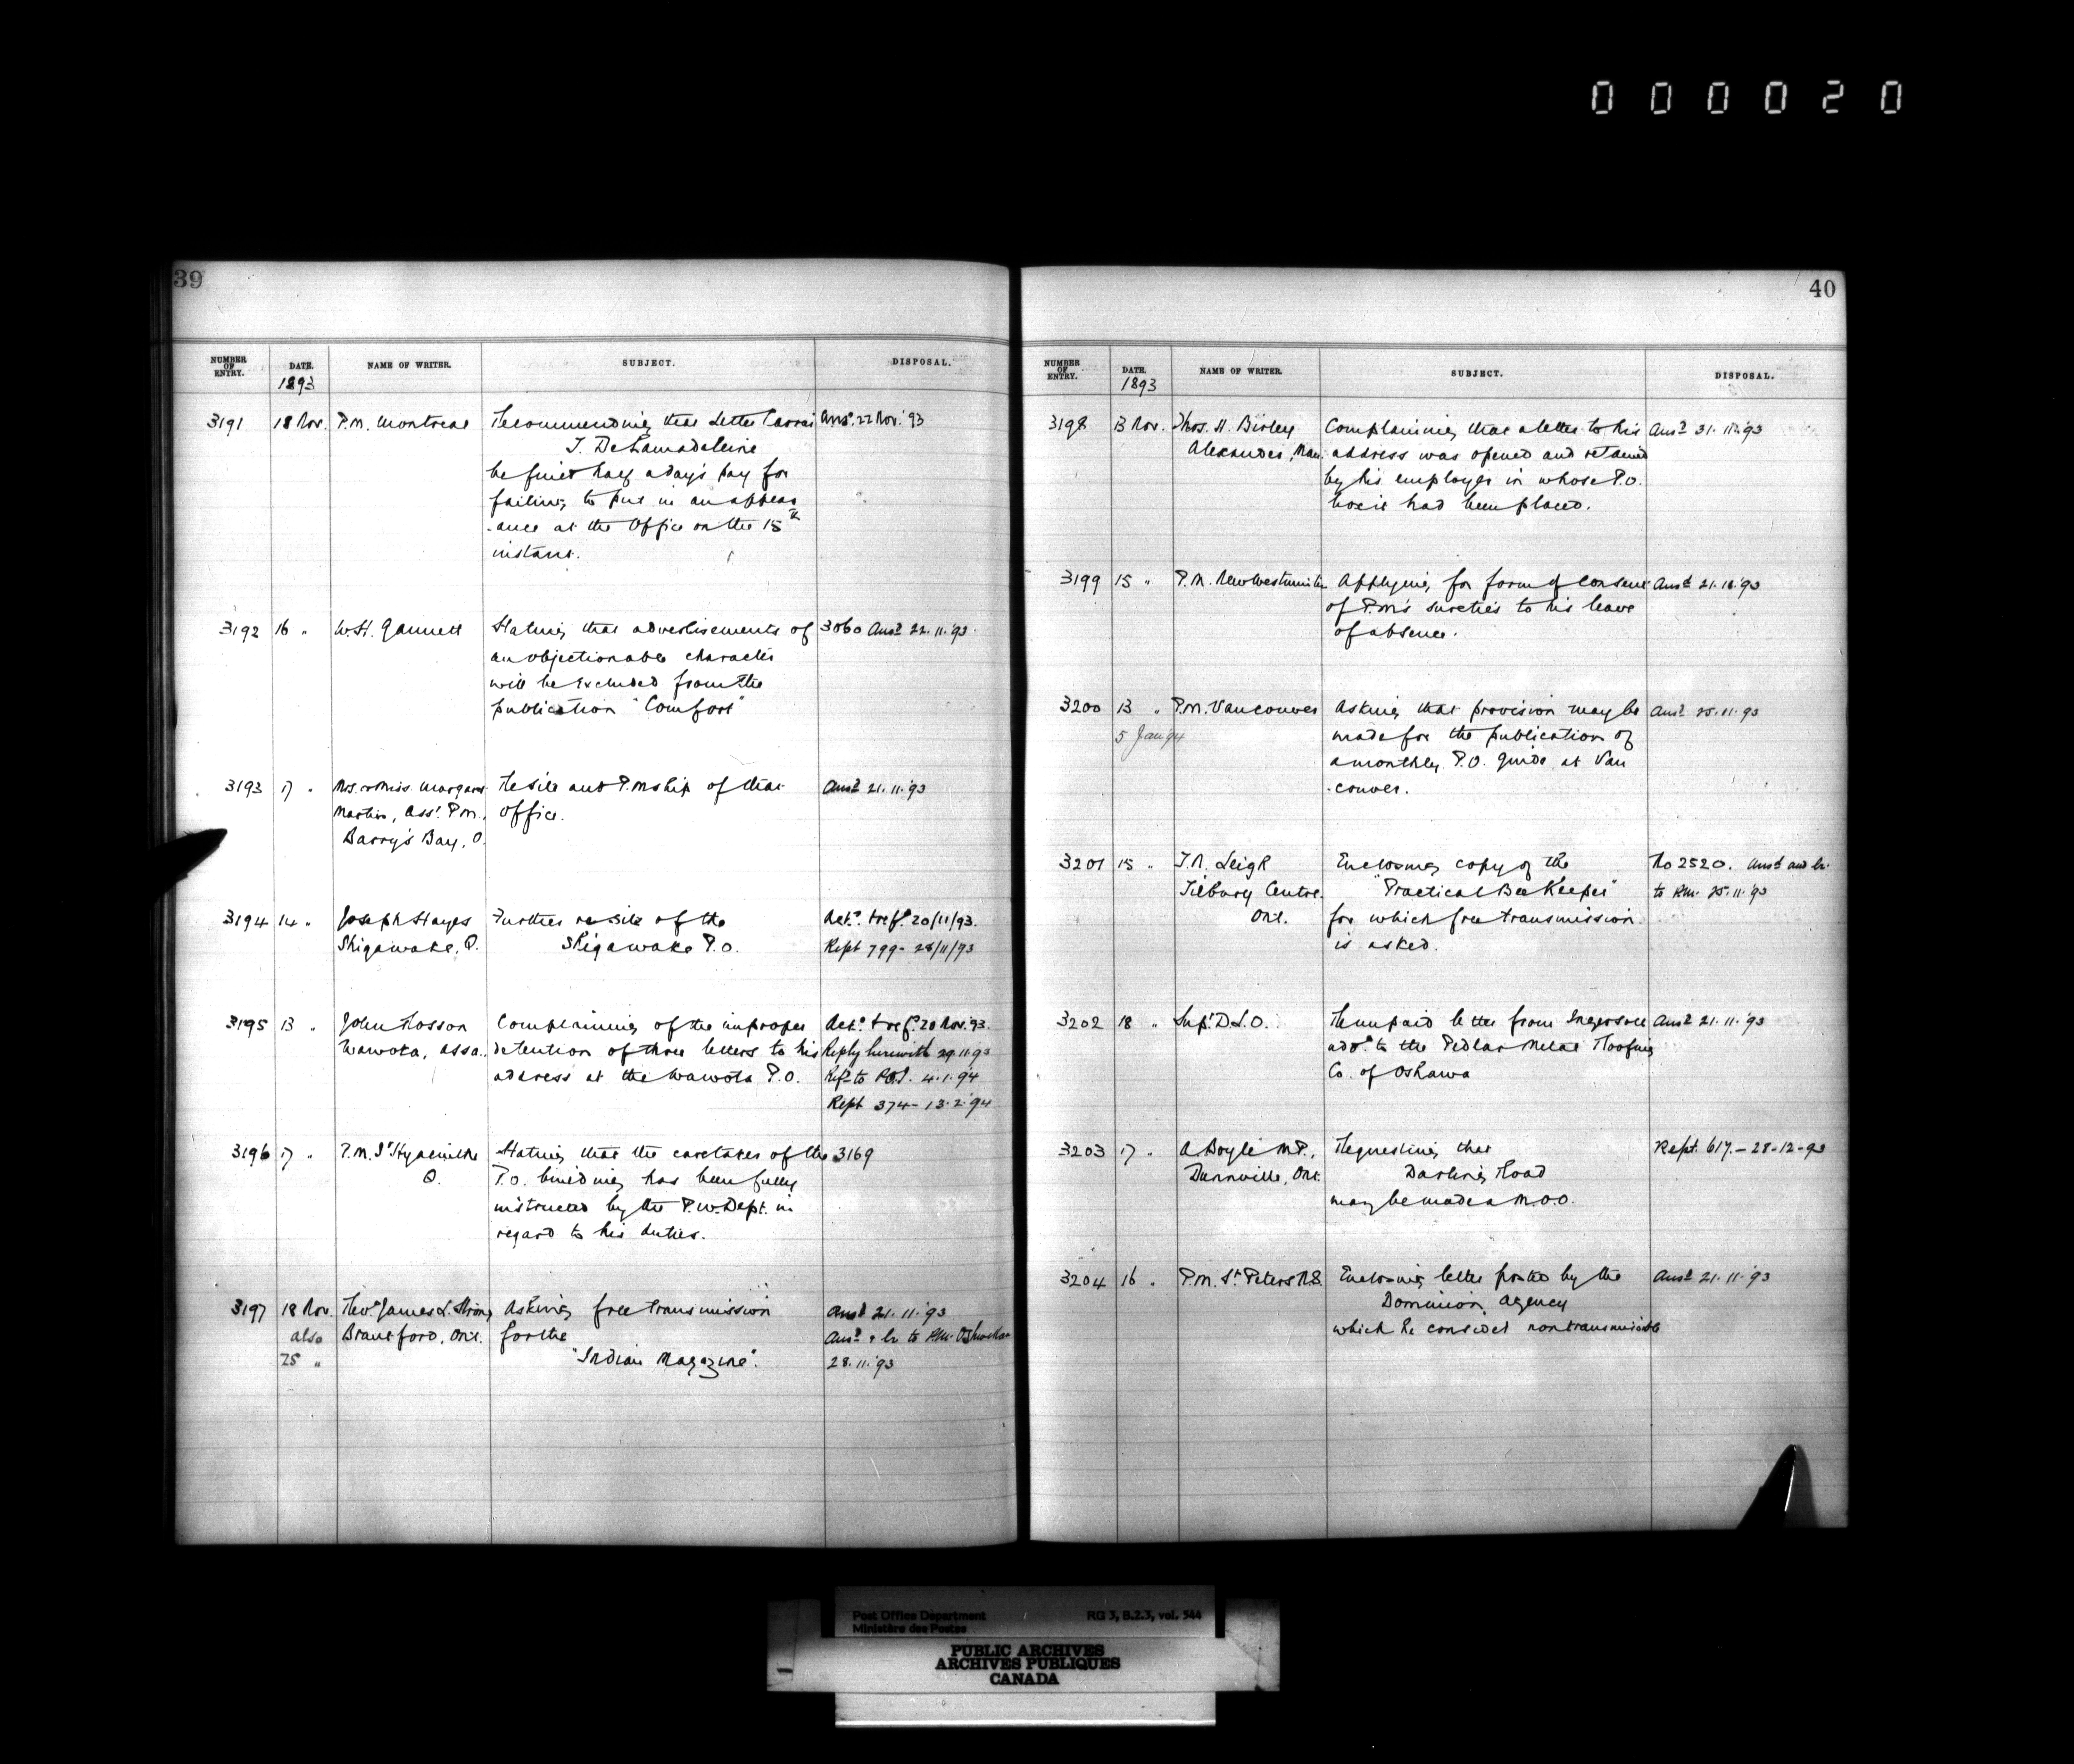 000020
39
NUMBER OF ENTRY. DATE. NAME OF WRITER. SUBJECT. DISPOSAL.
1893
3191 18 Nov. P.M. Montreal Recommending that Letter Carrier Ansd. 22 Nov. '93
J. DeLamadeleine
be fined half a day's pay for
failing to put in an appear
-ance at the Office on the 15th
instant.
3192 16 " W.H. Gannett Stating that advertisements of 3060 Ansd 22.11.'93.
an objectionable character
will be excluded from the
publication "Comfort"
3193 17 " Mrs. or Miss Margaret Re site and P.Mship of that Ansd 21.11.'93
Martin, Asst. P.M., office.
Barry's Bay, O.
3194 14 " Joseph Hayes Further re site of the Ackd. & refd. 20/11/93.
Shigawake, Q. Shigawake P.O. Rept 799 - 28/11/93
3195 13 " John Rosson Complaining of the improper Ackd. & refd. 20 Nov. '93.
Wawota, Assa. detention of three letters to his Reply herewith 29.11.93
address at the Wawota P.O. Refd to P.O.I. 4.1.'94
Rept 374 - 13.2.'94
3196 17 " P.M. St Hyacinthe Stating that the caretaker of the 3169
Q. P.O. building has been fully
instructed by the P.W. Dept. in
regard to his duties.
3197 18 Nov. Revd James L. Strong Asking free transmission Ansd 21.11.'93
also Brantford, Ont. for the Ansd & lr to P.M. Ohsweken
25 " "Indian Magazine". 28.11.'93
40
NUMBER OF ENTRY. DATE. NAME OF WRITER. SUBJECT. DISPOSAL.
1893
3198 13 Nov. Thos. H. Birley Complaining that a letter to his Ansd 31.11.'93
Alexander, Man. address was opened and retained
by his employer in whose P.O.
box it had been placed.
3199 15 " P.M. New Westminster Applying for form of consent Ansd 21.11.'93
of P.M's sureties to his leave
of absence.
3200 13 " P.M. Vancouver Asking that provision may be Ansd 25.11.93
5 Jan '94 made for the publication of
a monthly P.O. guide at Van
-couver.
3201 15 " T.N. Leigh Enclosing copy of the No 2520. Ansd and lr.
Tilbury Centre, "Practical Bee Keeper" to P.M. 25.11.'93
Ont. for which free transmission
is asked.
3202 18 " Supt D.L.O. Re unpaid letter from Ingersoll Ansd 21.11.'93
addd to the Pedlar Metal Roofing
Co. of Oshawa
3203 17 " A Boyle M.P., Requesting that Rept. 617. - 28-12-93
Dunnville, Ont. Darling Road
may be made a M.O.O.
3204 16 " P.M. St Peters N.S. Enclosing letter posted by the Ansd 21.11.'93
Dominion Agency
which he considers nontransmissible
Post Office Department RG 3, B.2.3, vol. 544
Ministère des Postes
PUBLIC ARCHIVES
ARCHIVES PUBLIQUES
CANADA